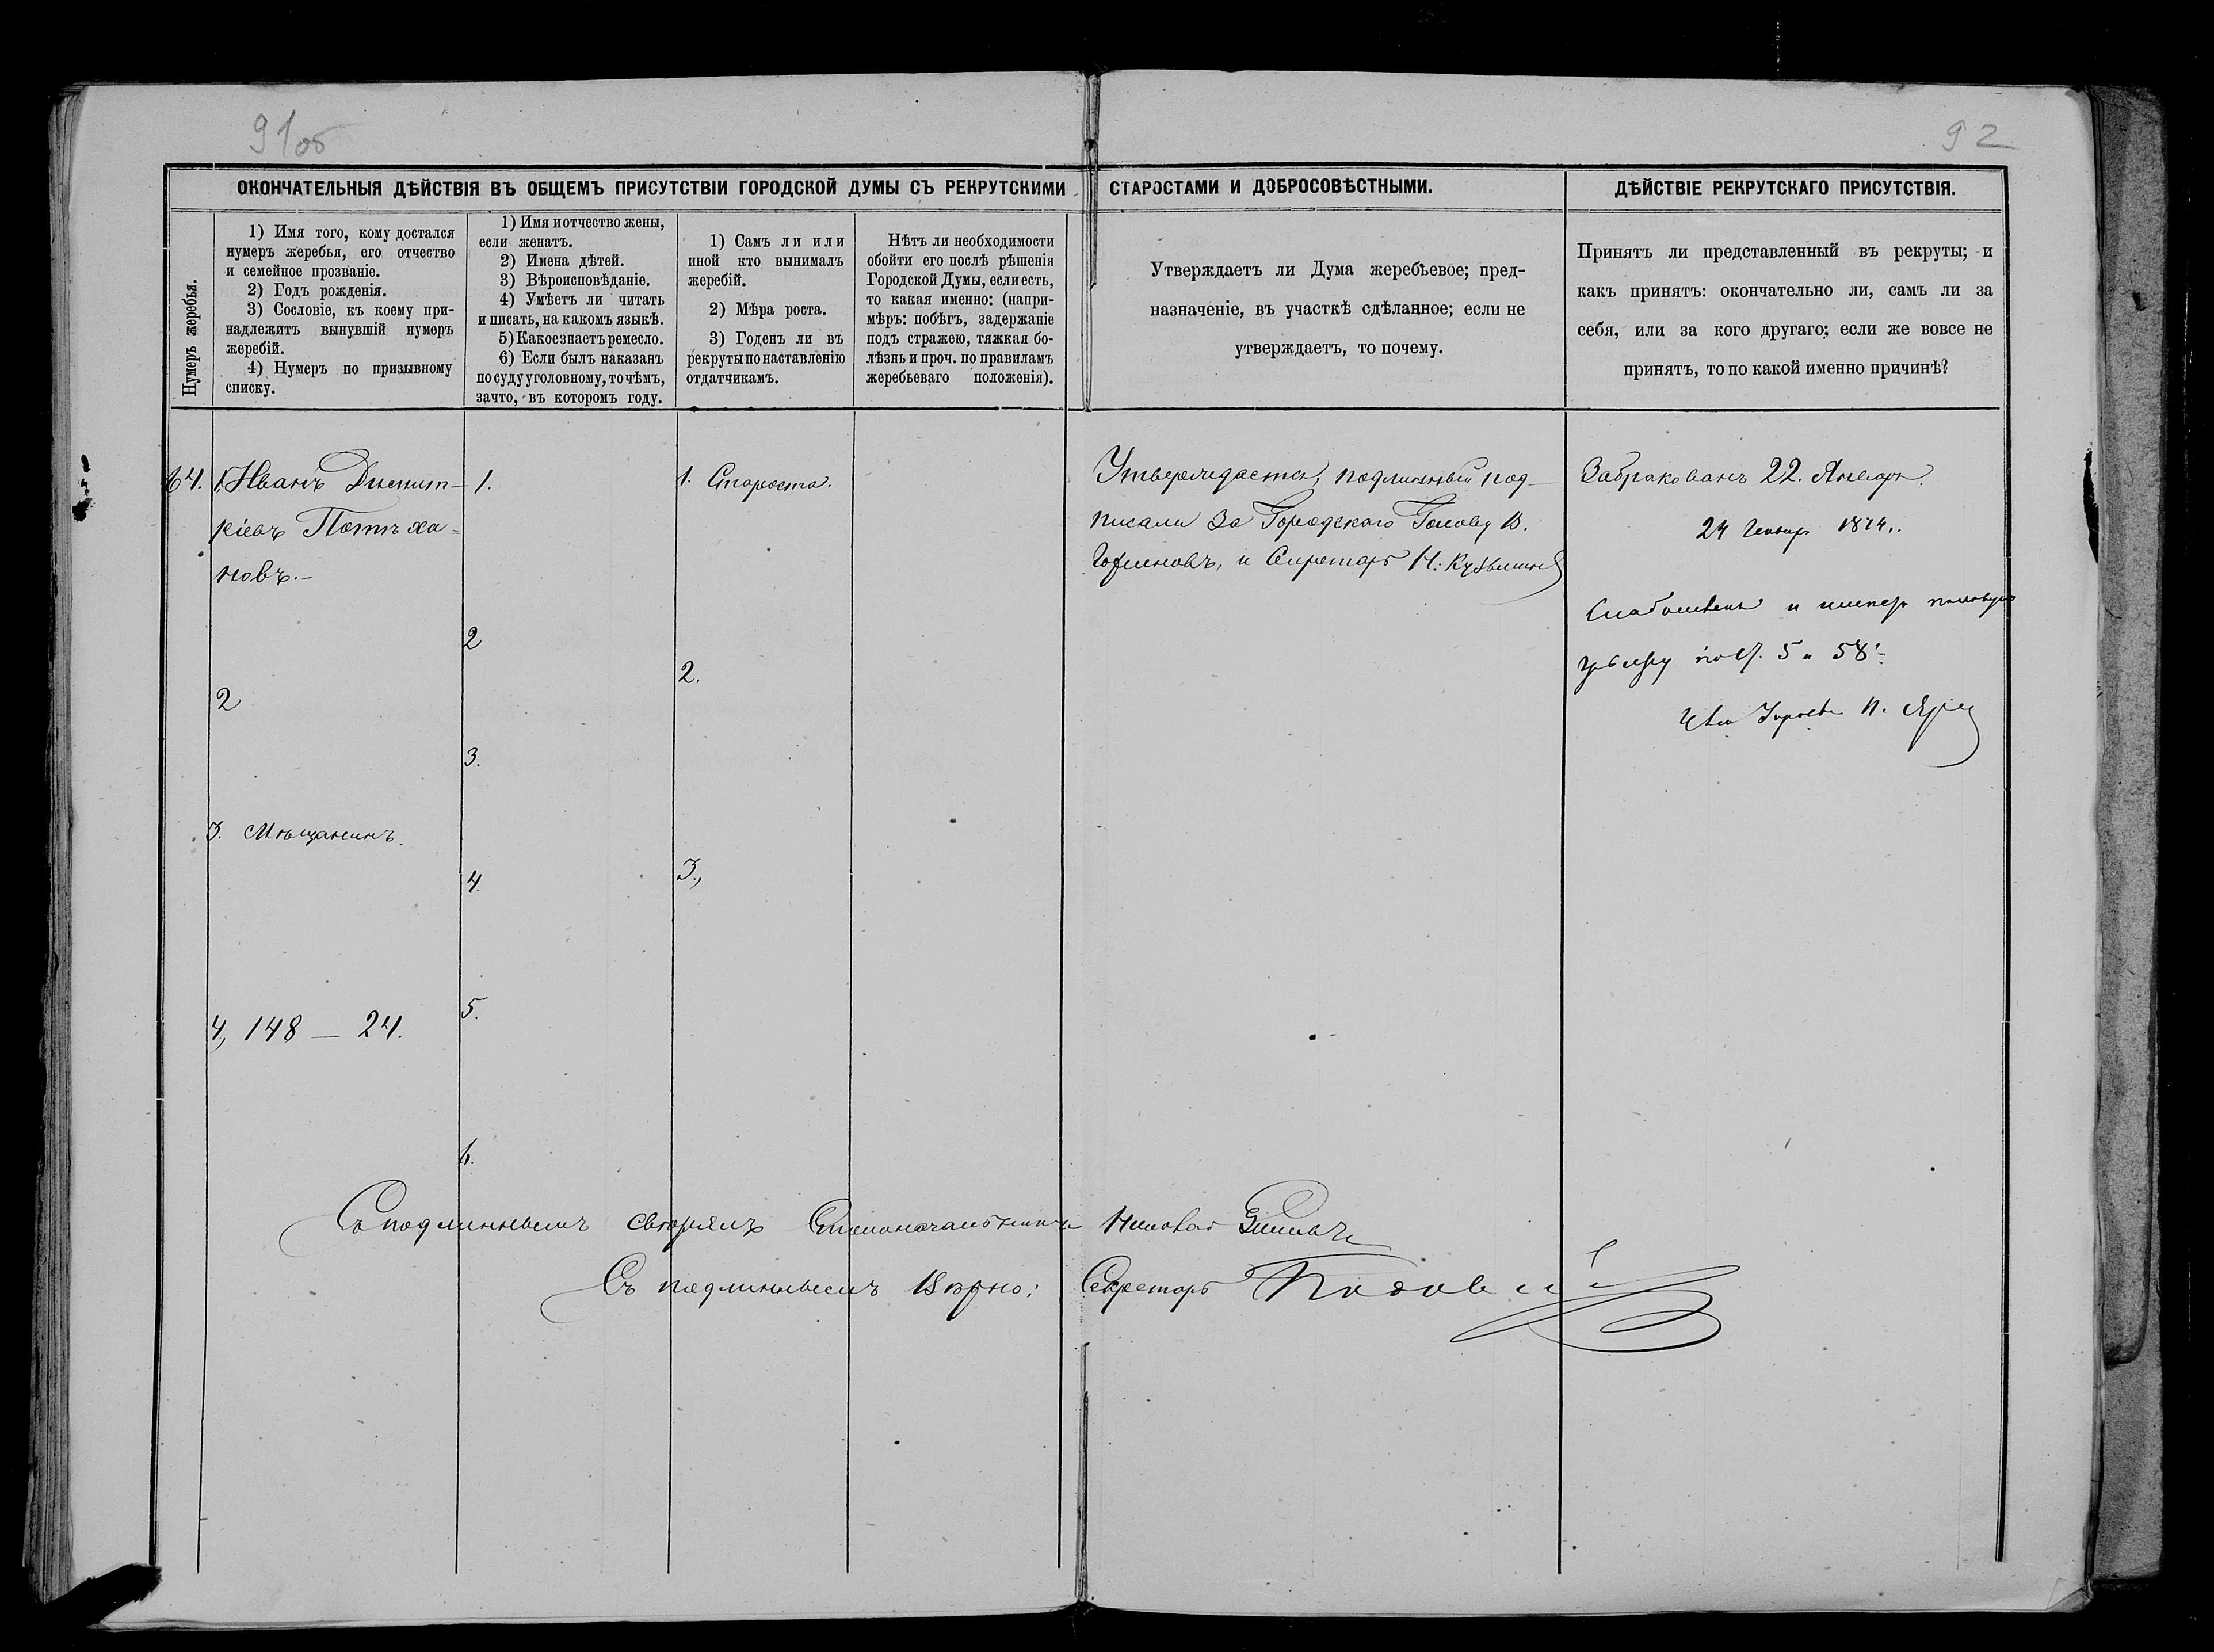 91об
92
ОКОНЧАТЕЛЬНЫЯ ДѢЙСТВІЯ ВЪ ОБЩЕМЪ ПРИСУТСТВІИ ГОРОДСКОЙ ДУМЫ СЪ РЕКРУТСКИМИ СТАРОСТАМИ И ДОБРОСОВѢСТНЫМИ.
ДѢЙСТВІЕ РЕКРУТСКАГО ПРИСУТСТВІЯ.
Нумеръ жеребья.
1) Имя того, кому достался
нумеръ жеребья, его отчество
и семейное прозваніе.
2) Годъ рожденія.
3) Сословіе, къ коему при-
надлежитъ вынувшій нумеръ
жеребій.
4) Нумеръ по призывному
списку.
1) Имя и отчество жены,
если женатъ.
2) Имена дѣтей.
3) Вѣроисповѣданіе.
4) Умѣетъ ли читать
и писать, на какомъ языкѣ.
5) Какое знаетъ ремесло.
6) Если былъ наказанъ
по суду уголовному, то чѣмъ,
за что, въ которомъ году.
1) Самъ ли или
иной кто вынималъ
жеребій.
2) Мѣра роста.
3) Годенъ ли въ
рекруты по наставленію
отдатчикамъ.
Нѣтъ ли необходимости
обойти его послѣ рѣшенія
Городской Думы, если есть,
то какая именно: (напри-
мѣръ: побѣгъ, задержаніе
подъ стражею, тяжкая бо-
лѣзнь и проч. по правиламъ
жеребьеваго положенія).
Утверждаетъ ли Дума жеребьевое; пред-
назначеніе, въ участкѣ сдѣланное; если не
утверждаетъ, то почему.
Принятъ ли представленный въ рекруты; и
какъ принятъ: окончательно ли, самъ ли за
себя, или за кого другаго; если же вовсе не
принятъ, то по какой именно причинѣ?
64.
1, Иванъ Дмит-
ріевъ
новъ.-
2
3. Мѣщанинъ.
4, 148 — 24.
1.
2
3.
4.
5.
6.
1. Староста.
2.
3.,
Утверждается, подлинный под-
писали За Городскаго Голову В.
и Секретарь Н: Кузьминъ
Забракованъ 22. Января.
24 1874.
и
5 и 58
Съ подлиннымъ свѣрялъ Столоначальникъ
Съ подлиннымъ Вѣрно: Секретарь